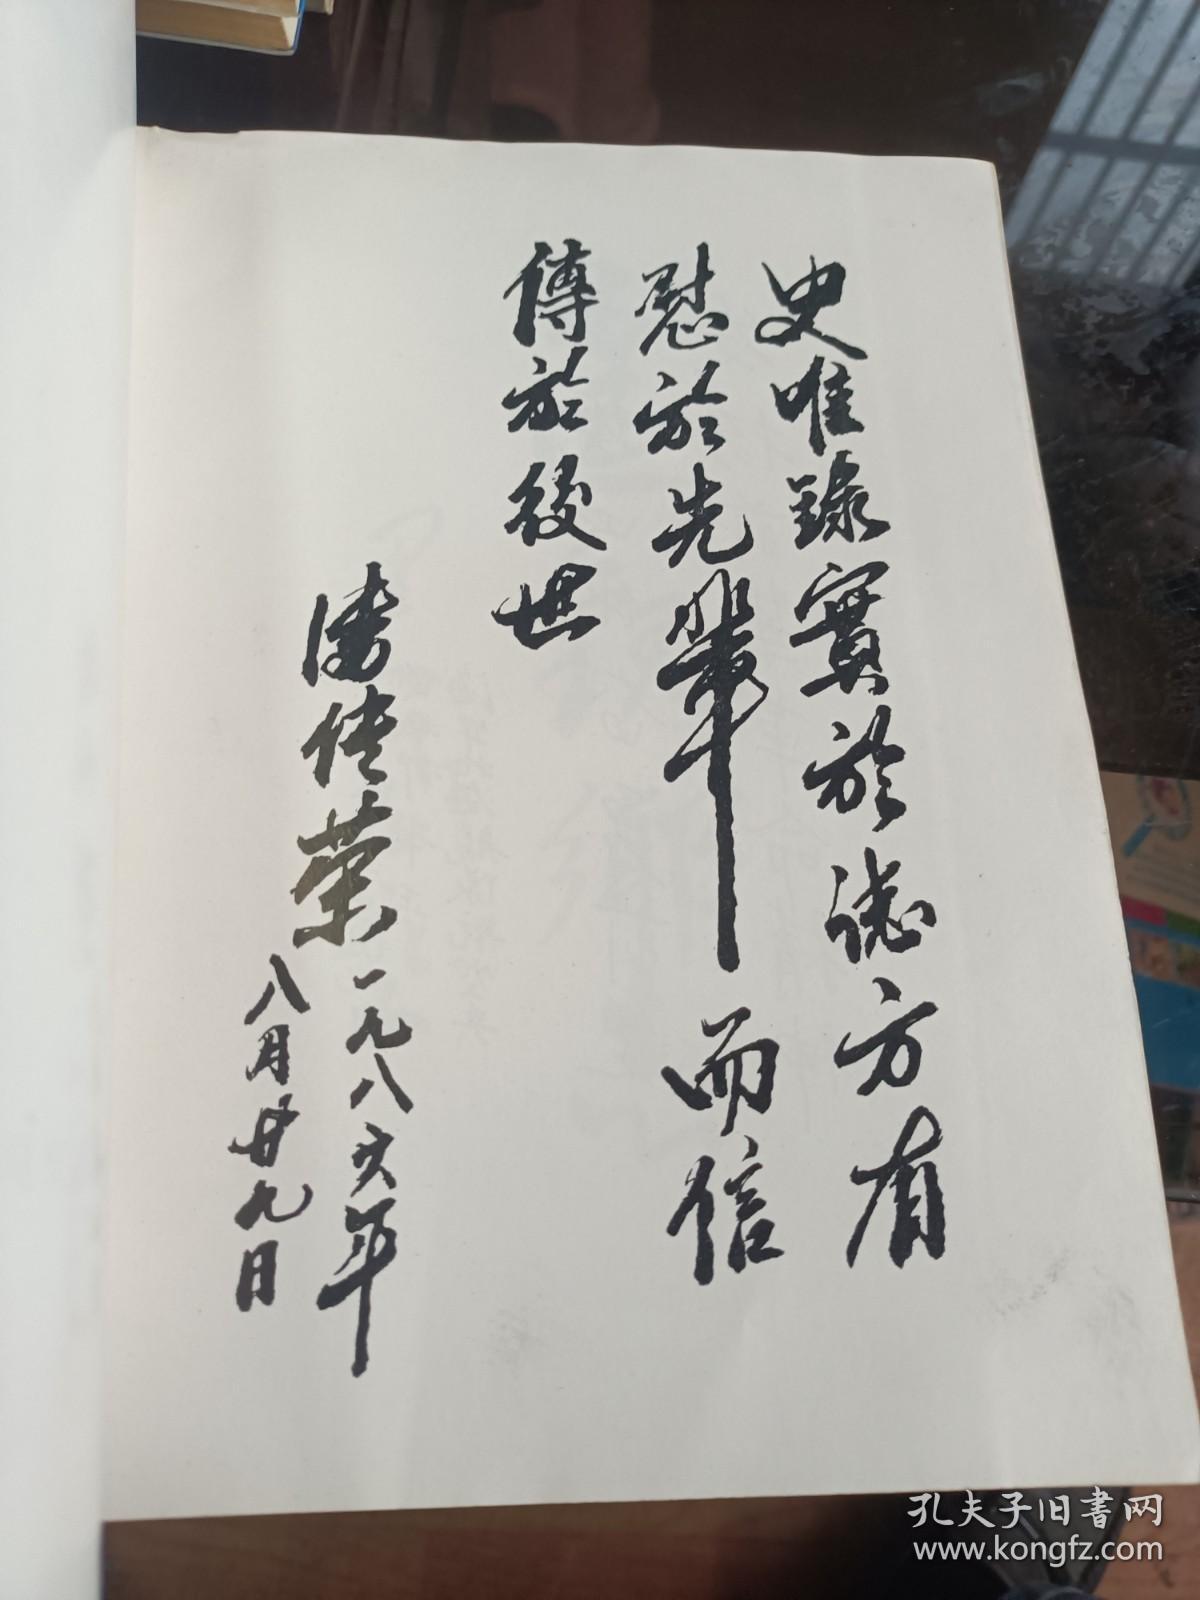 史唯録實於誌方有
慰於先輩而信
傳於後世
潘传荣一九八六年
八月廿九日
孔夫子旧书网
www.kongfz.com